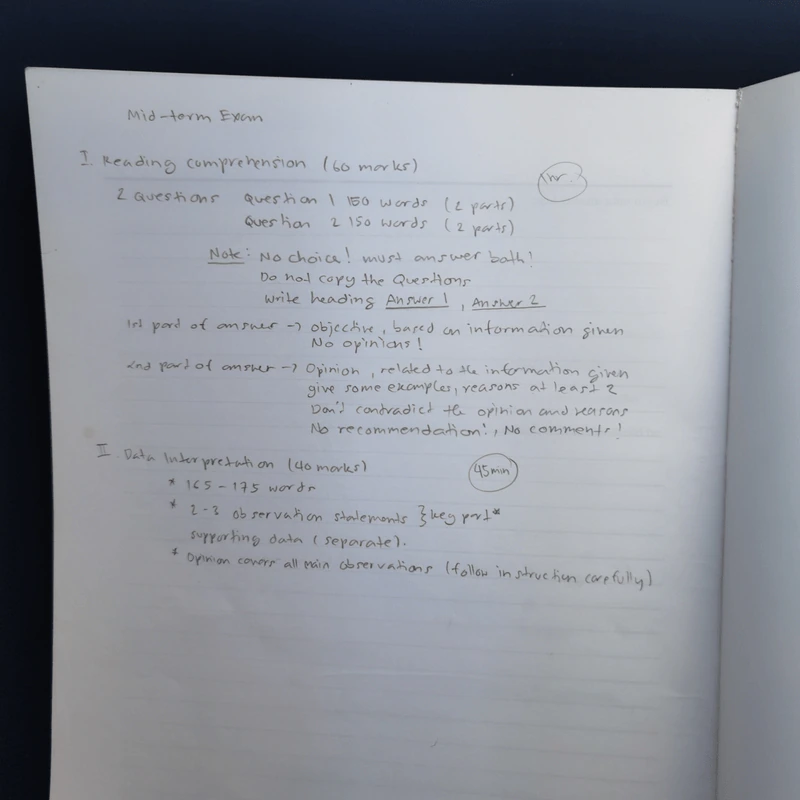 Mid-term Exam
I. Reading comprehension (60 marks)
1hr.
2 Questions Question 1 150 words (2 parts)
Question 2 150 words (2 parts)
Note: No choice! must answer both!
Do not copy the Questions
Write heading Answer 1, Answer 2
1st part of answer → objective, based on information given
No opinions!
2nd part of answer → Opinion, related to the information given
give some examples, reasons at least 2
Don't contradict the opinion and reasons
No recommendation!, No comments!
II. Data Interpretation (40 marks)
45min
* 165-175 words
* 2-3 observation statements } key part*
supporting data (separate).
* Opinion covers all main observations (follow instruction carefully)